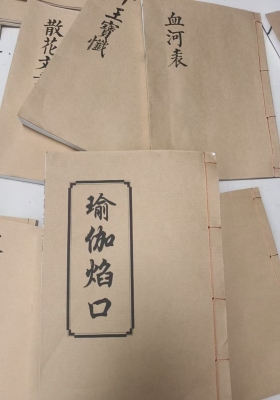 散花文
王寶懺
血河表
瑜伽焰口